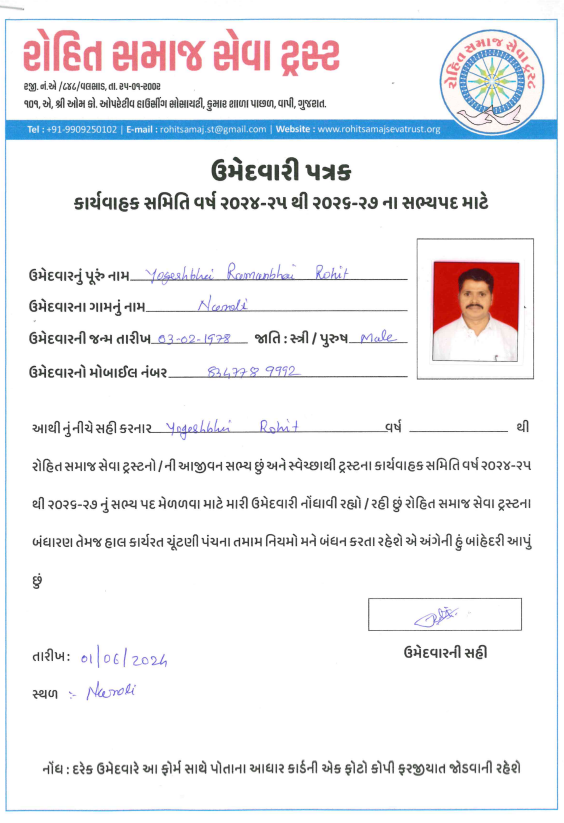 રોહિત સમાજ સેવા ટ્રસ્ટ
રજી. નં.એ /૮૪૮/વલસાડ, તા. ૨૫-૦૧-૨૦૦૨
૧૦૧, એ, શ્રી ઓમ કો. ઓપરેટીવ હાઉસીંગ સોસાયટી, કુમાર શાળા પાછળ, વાપી, ગુજરાત.
રોહિત સમાજ સેવા ટ્રસ્ટ
Tel : +91-9909250102 | E-mail : rohitsamaj.st@gmail.com | Website : www.rohitsamajsevatrust.org
ઉમેદવારી પત્રક
કાર્યવાહક સમિતિ વર્ષ ૨૦૨૪-૨૫ થી ૨૦૨૬-૨૭ ના સભ્યપદ માટે
ઉમેદવારનું પૂરું નામ Yogeshbhai Ramanbhai Rohit
ઉમેદવારના ગામનું નામ
ઉમેદવારની જન્મ તારીખ 03-02-1978 જાતિ : સ્ત્રી / પુરુષ Male
ઉમેદવારનો મોબાઈલ નંબર 834778 9992
આથી નું નીચે સહી કરનાર Yogeshbhai Rohit વર્ષ થી
રોહિત સમાજ સેવા ટ્રસ્ટનો / ની આજીવન સભ્ય છું અને સ્વેચ્છાથી ટ્રસ્ટના કાર્યવાહક સમિતિ વર્ષ ૨૦૨૪-૨૫
થી ૨૦૨૬-૨૭ નું સભ્ય પદ મેળળવા માટે મારી ઉમેદવારી નોંધાવી રહ્યો / રહી છું રોહિત સમાજ સેવા ટ્રસ્ટના
બંધારણ તેમજ હાલ કાર્યરત ચૂંટણી પંચના તમામ નિયમો મને બંધન કરતા રહેશે એ અંગેની હું બાંહેદરી આપું
છું
તારીખ : 01/06/2024
ઉમેદવારની સહી
સ્થળ :-
નોંધ : દરેક ઉમેદવારે આ ફોર્મ સાથે પોતાના આધાર કાર્ડની એક ફોટો કોપી ફરજીયાત જોડવાની રહેશે